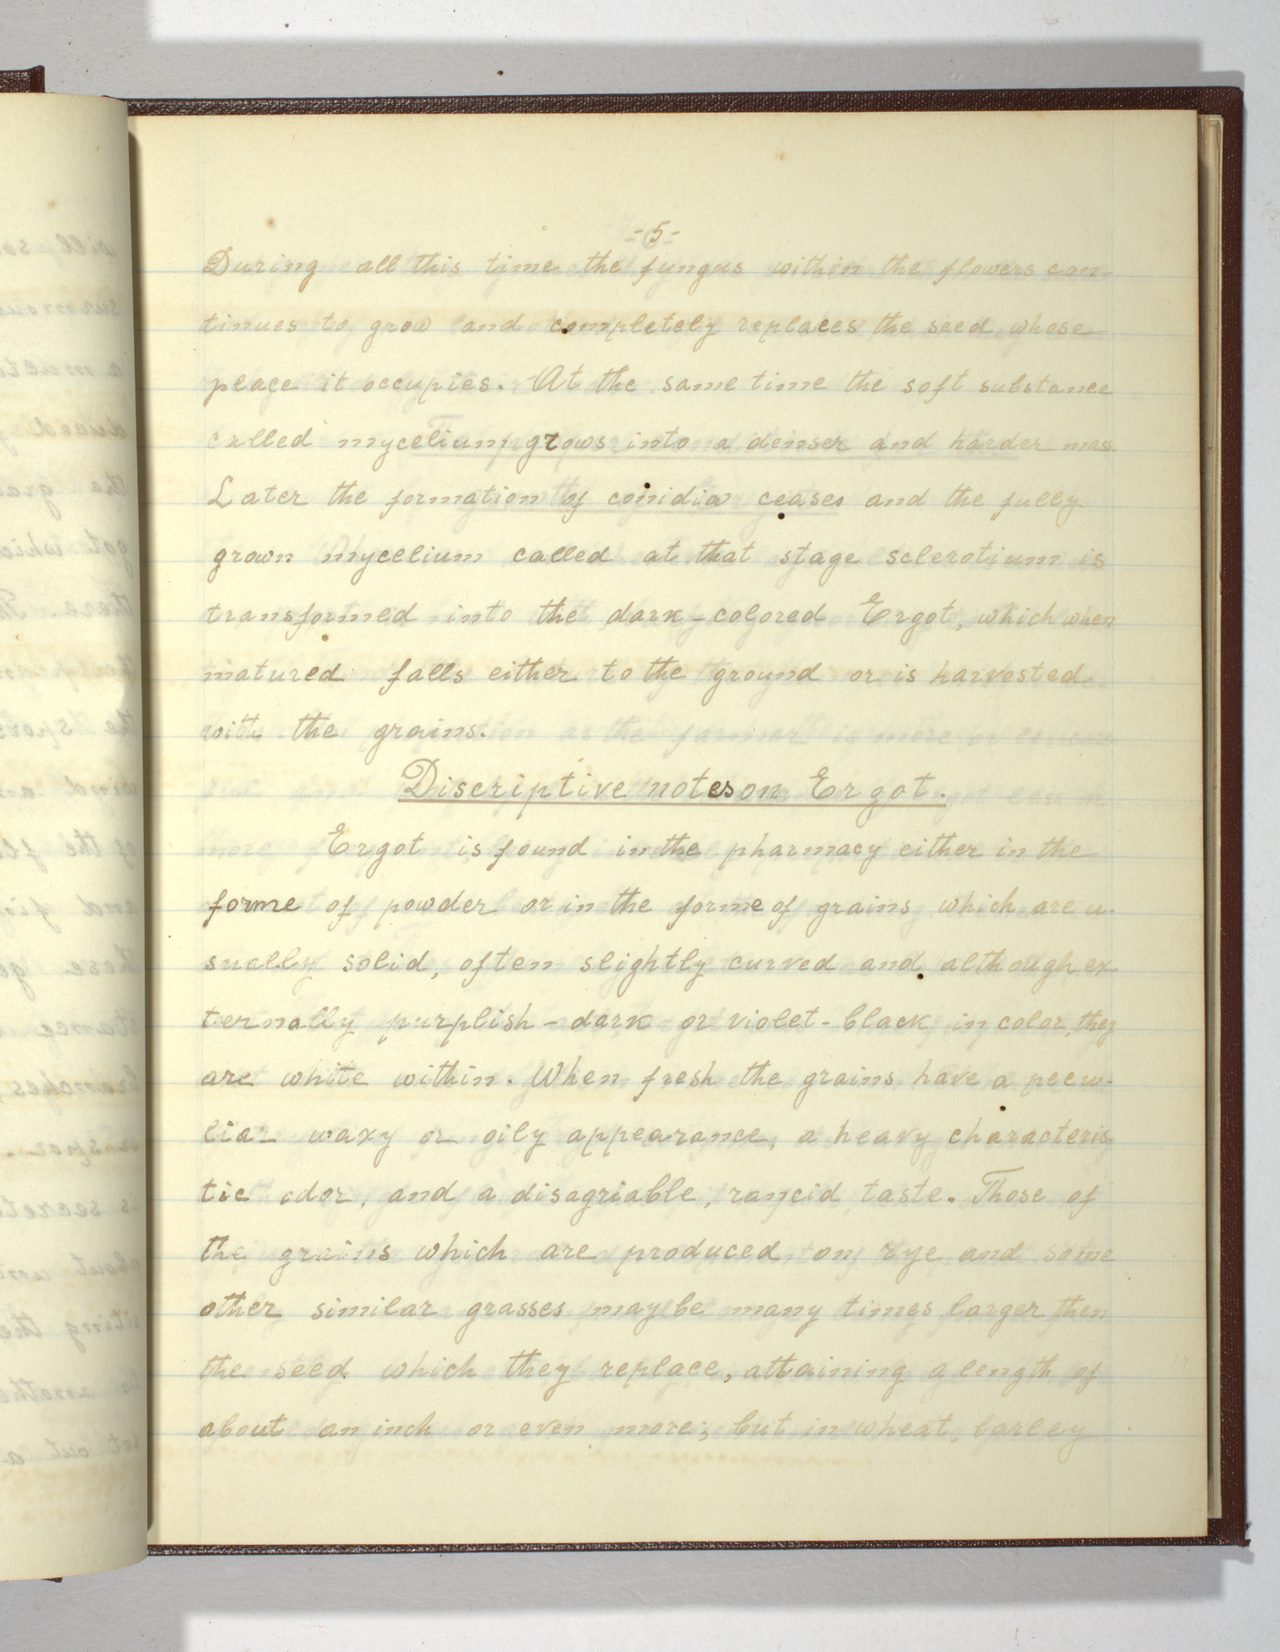 -5-
During all this time the fungus within the flowers con-
tinues to grow and completely replaces the seed whose
place it occupies. At the same time the soft substance
called mycelium grows into a denser and harder mass.
Later the formation of conidia ceases and the fully
grown mycelium called at that stage sclerotium is
transformed into the dark-colored Ergot, which when
matured falls either to the ground or is harvested
with the grains.
Discriptive notes on Ergot.
Ergot is found in the pharmacy either in the
forme of powder or in the forme of grains which are u-
sually solid, often slightly curved and although ex
ternally purplish-dark or violet-black in color, they
are white within. When fresh the grains have a pecu-
liar waxy or oily appearance, a heavy characteris
tic odor, and a disagriable, rancid taste. Those of
the grains which are produced on rye and some
other similar grasses may be many times larger then
the seed which they replace, attaining a length of
about an inch or even more; but in wheat, barley